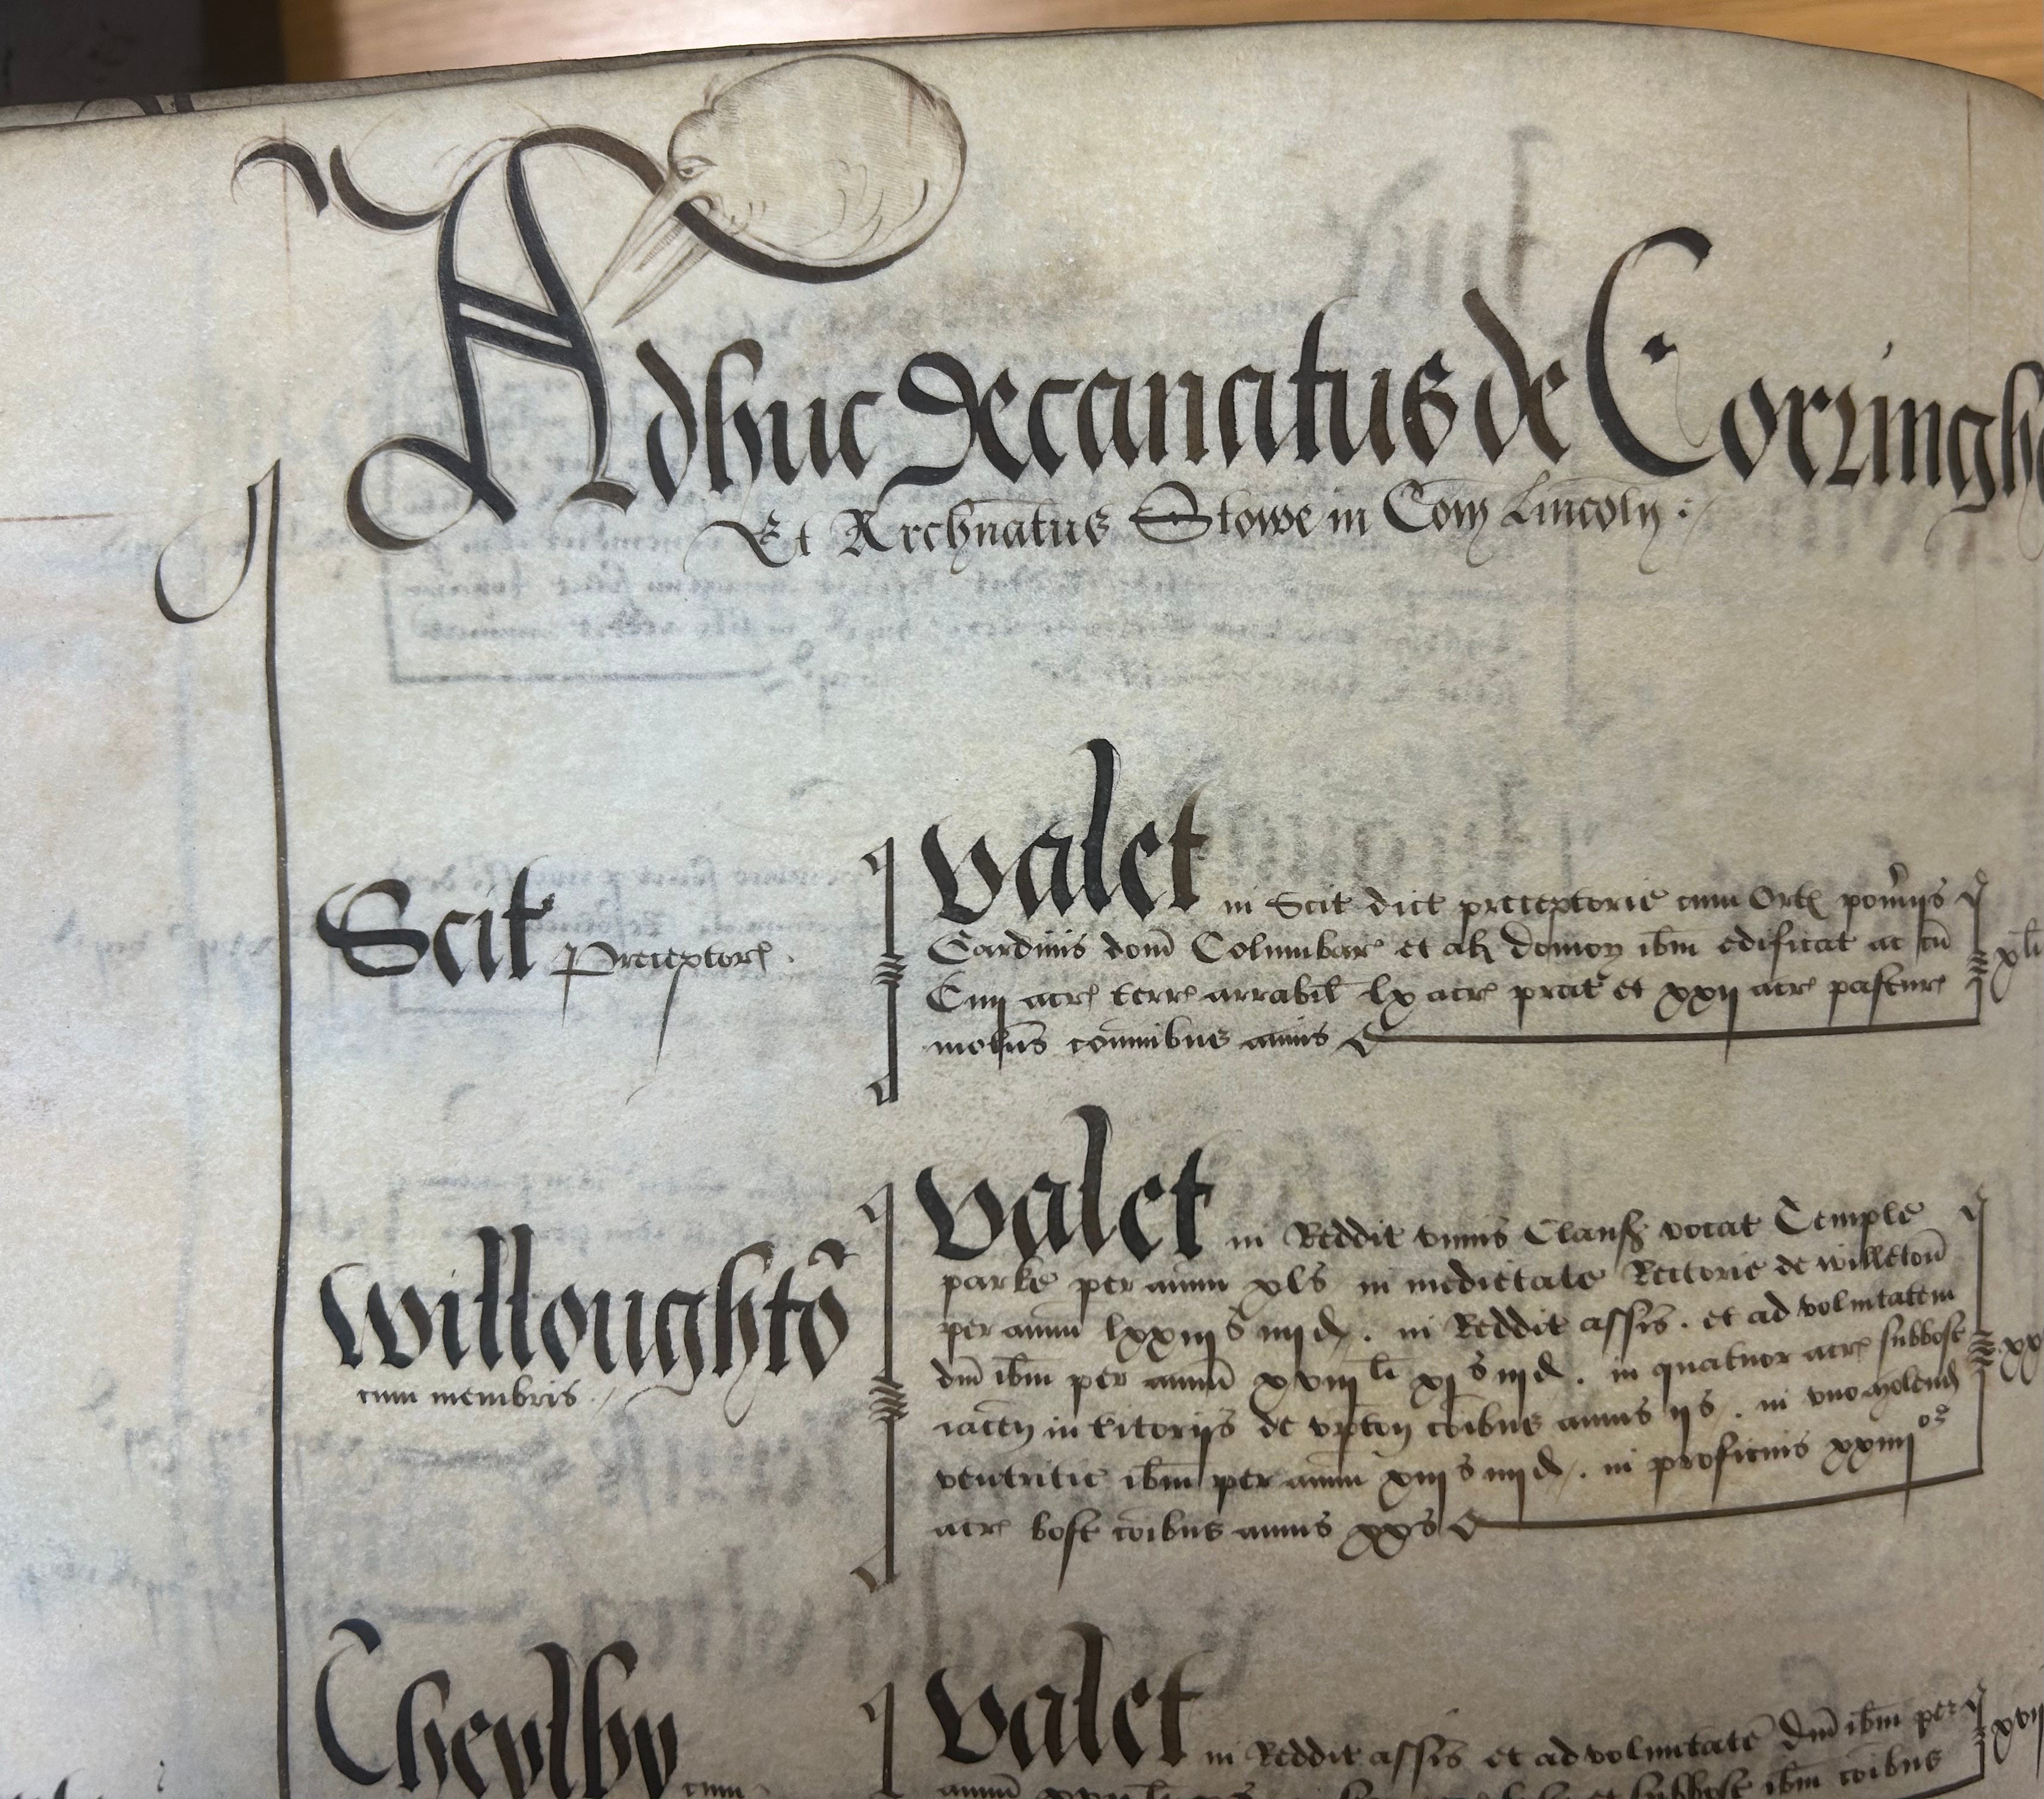 Adhuc Decanatus de Corringh
Et Archnatus Stowe in Com Lincoln :
Scit Preceptor .
Valet in Scit dict preceptorie cum Ort pomijs
Gardinis dom Columbar et al domor ibm edificat ac cu
Ciiij acr terre arrabil lx acr prat et xxij acr pasture
modus comnibus annis
xl
Willoughto
cum membris
Valet in Reddit unius Claus vocat Temple
parke per annu xls in medietate Rectorie de willeton
per annu lxxiijs iiijd . in Reddit assis . et ad voluntatem
dni ibm per annu xviij li xjs iijd . in quatuor acr subbosc
iacen in Titorijs de upton coibus annis ijs . in uno molend
ventritic ibm per annu xiijs iiijd . in proficuis xxiiij or
acr bosc coibus annis xxs
xx
Cheylby cum
Valet in Reddit assis et ad voluntate dni ibm per
annu et subbosc ibm coibus
xvij